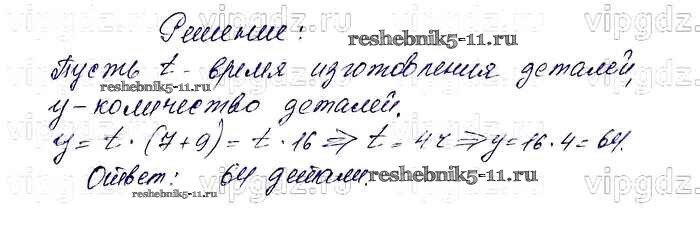 Решение:
Пусть t - время изготовления деталей,
y - количество деталей.
y = t · (7+9) = t · 16 => t = 4ч => y = 16 · 4 = 64.
Ответ: 64 детали.
reshebnik5-11.ru
reshebnik5-11.ru
reshebnik5-11.ru
vipgdz.ru
vipgdz.ru
vipgdz.ru
vipgdz.ru
vipgdz.ru
vipgdz.ru